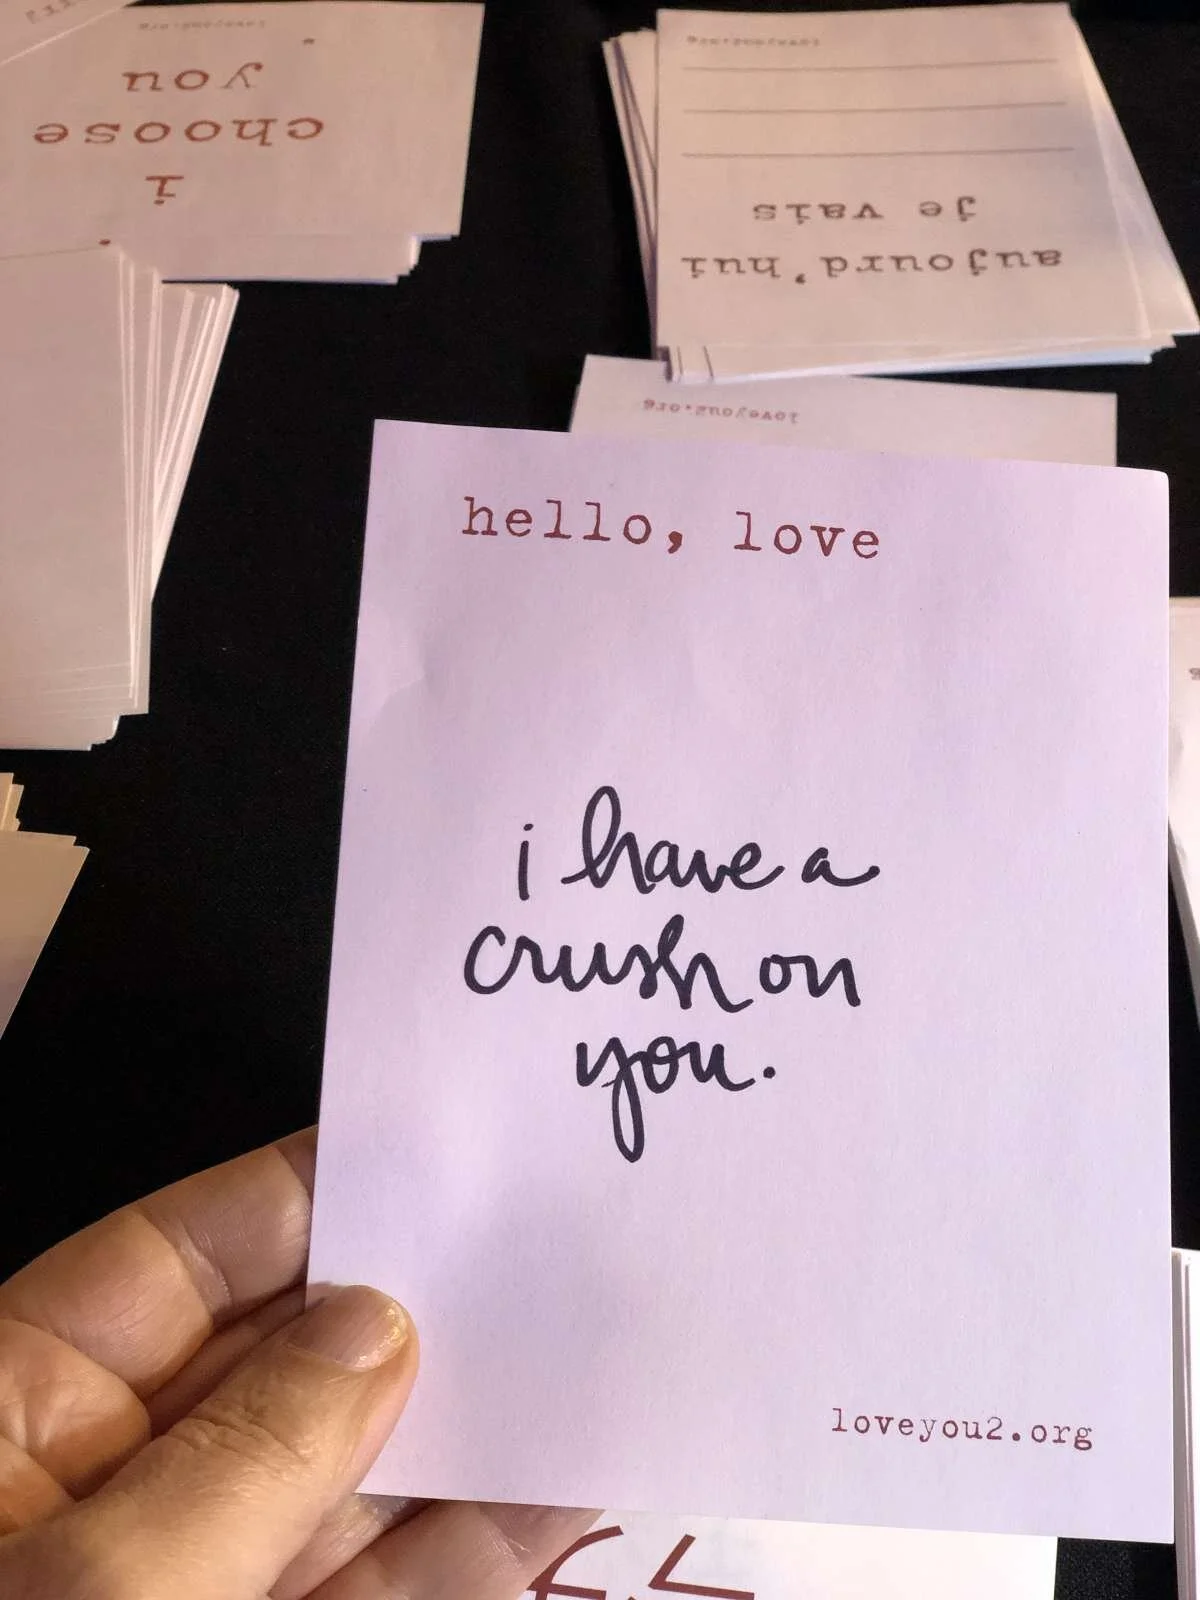 loveyou2.org
i
choose
you
loveyou2.org
aujourd'hui
je vais
loveyou2.org
hello, love
i have a
crush on
you.
loveyou2.org